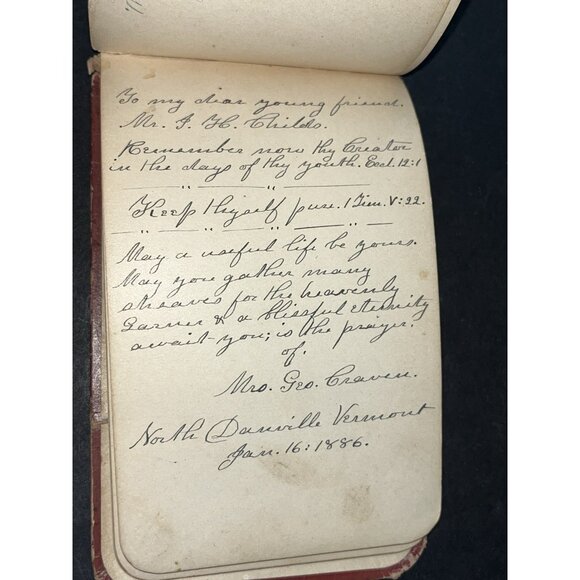 To my dear young friend.
Mr. I. H. Childs.
Remember now thy Creator
in the days of thy youth. Eccl. 12:1
Keep thyself pure. 1 Tim. V:22.
May a useful life be yours.
May you gather many
sheaves for the heavenly
Garner & a blissful eternity
await you; is the prayer.
of.
Mrs. Geo. Craven.
North Danville Vermont
Jan. 16: 1886.